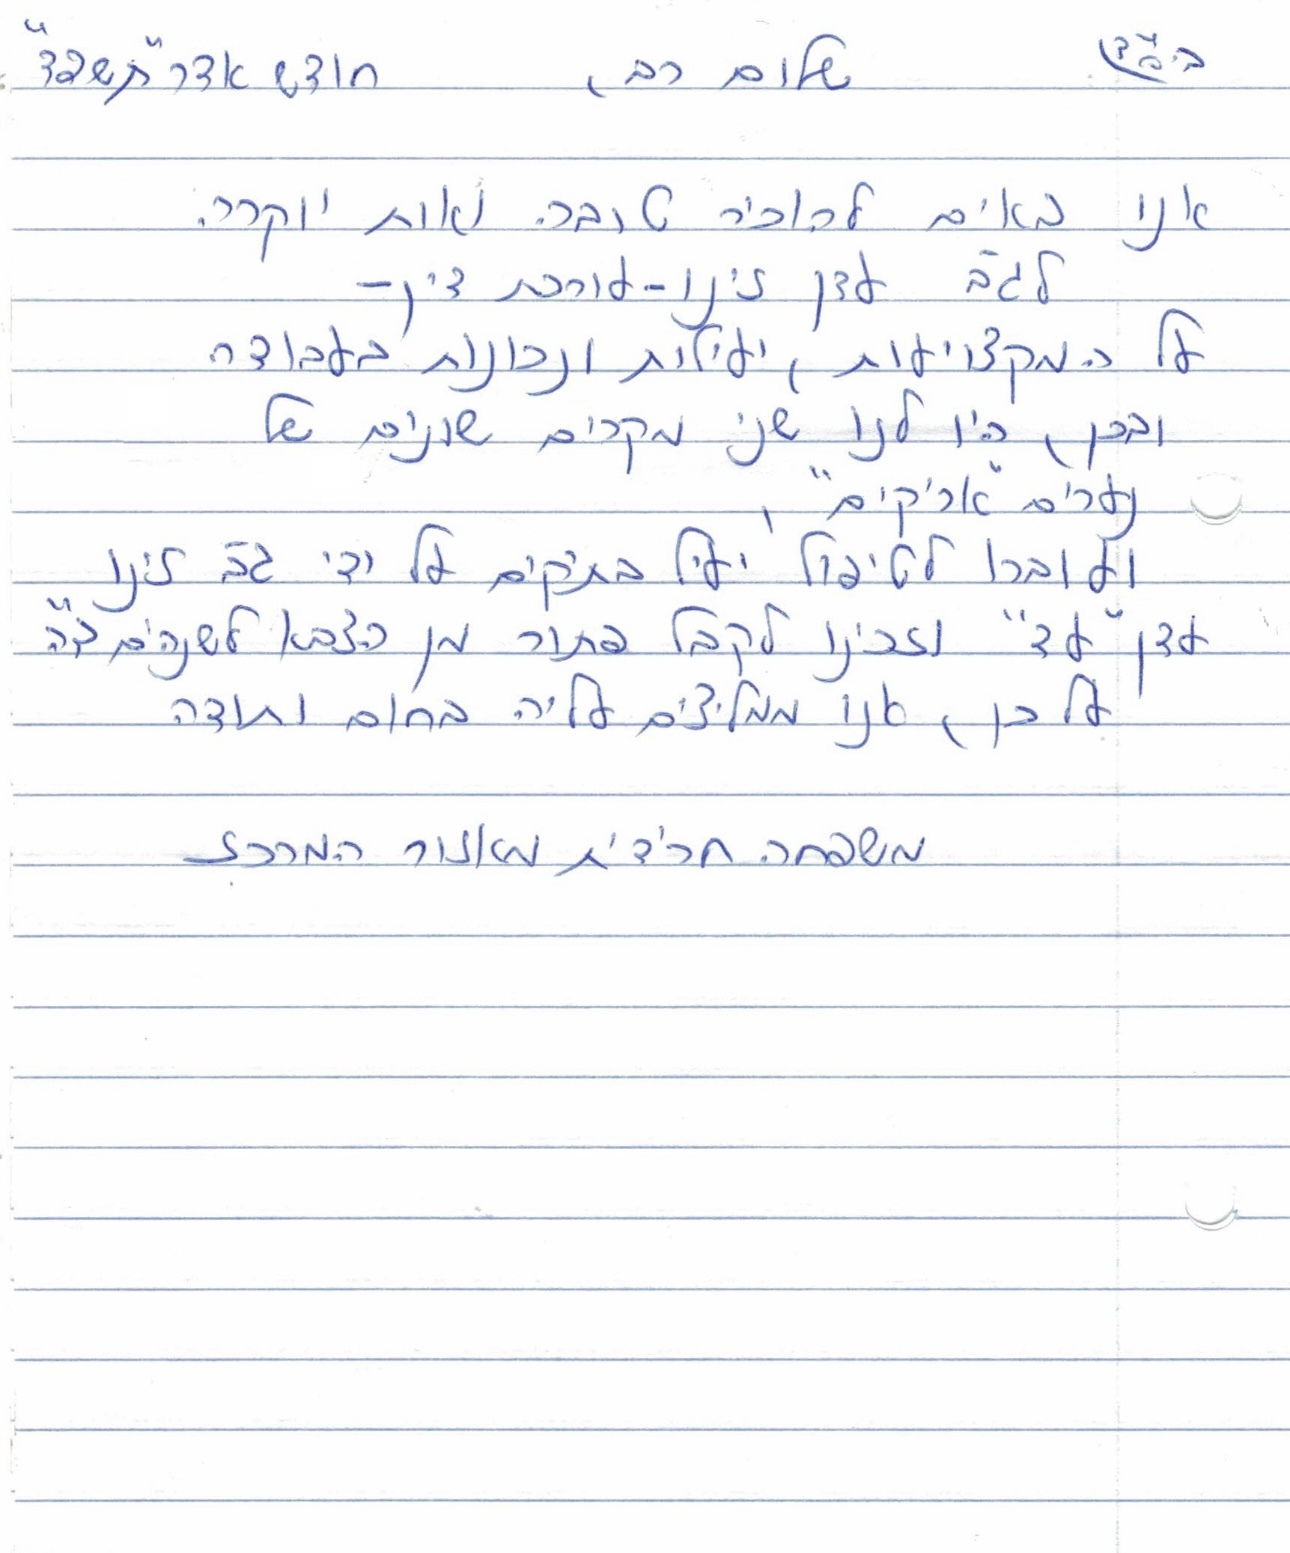 בס"ד שלום רב, חודש אדר "תשפד"
אנו באים להוכיר טובה ואות יוקרה
לגב' עדן זינו - עורכת דין -
על המקצויעות, יעילות ונכונות בעבודה
ובכן, היו לנו שני מקרים שונים של
נערים "אריקים",
ועוברו לטיפול יעיל בתיקים על ידי גב' זינו
עדן "עד" וזכינו לקבל פתור מן הצבא לשניהם ב"ה
על כן, אנו ממליצים עליה בחום ותודה
משפחה חרידית מאזור המרכז